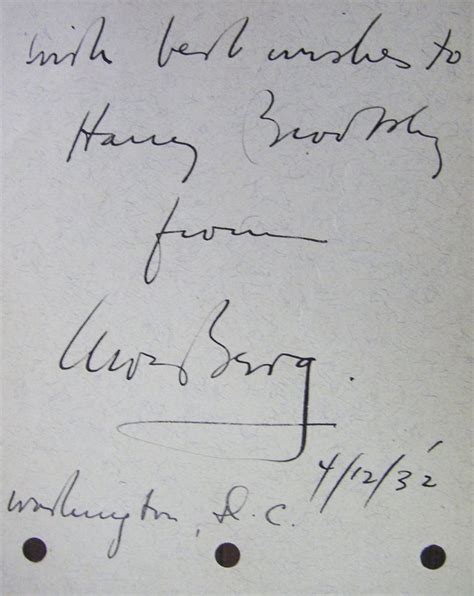 with best wishes to
Harry Brodsky
from
Moe Berg.
4/12/32
Washington, D.C.